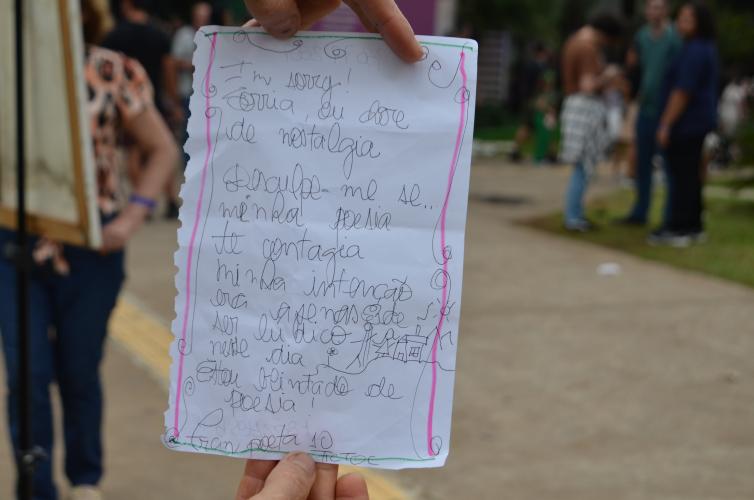 I'm sorry!
Sorria eu dore
de nostalgia
Desculpe-me se..
minha poesia
te contagia
minha intenção
era apenas de
ser lúdico
neste dia
Estou brintado de
poesia!
Fran poeta 10